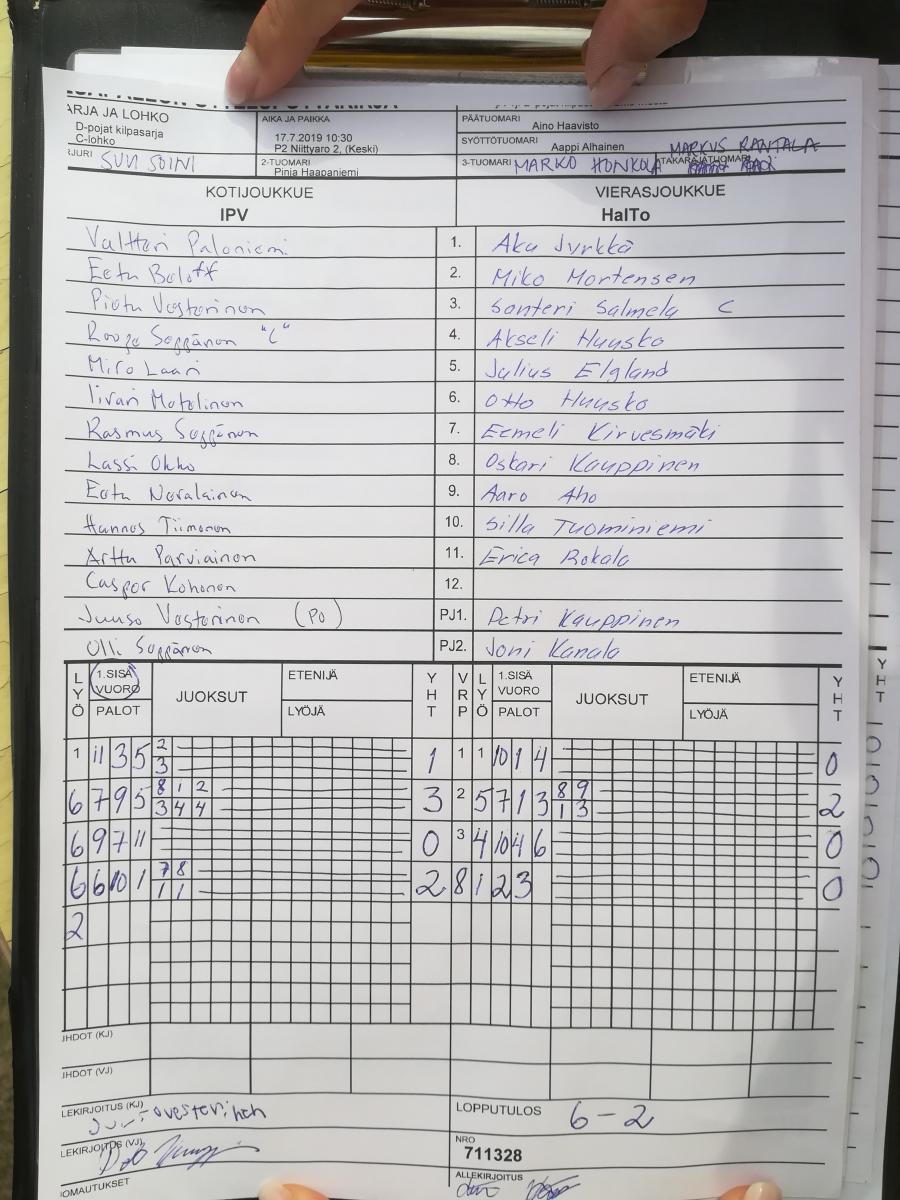 ARJA JA LOHKO
D-pojat kilpasarja
C-lohko
AIKA JA PAIKKA
17.7.2019 10:30
P2 Niittyaro 2, (Keski)
PÄÄTUOMARI
Aino Haavisto
SYÖTTÖTUOMARI
Aappi Alhainen
RJURI SUVI SOINI
2-TUOMARI
Pinja Haapaniemi
3-TUOMARI MARKO HONKOLA
TAKARAJATUOMARI MARKUS RANTALA
KOTIJOUKKUE VIERASJOUKKUE
IPV HalTo
Valtteri Paloniemi 1. Aku Jyrkkä
Eetu Beloff 2. Miko Mortensen
Pietu Vesterinen 3. Santeri Salmela C
Roope Seppänen "C" 4. Akseli Huusko
Miro Laari 5. Julius Elgland
Iivari Matolinen 6. Otto Huusko
Rasmus Seppänen 7. Eemeli Kirvesmäki
Lassi Okko 8. Oskari Kauppinen
Eetu Nevalainen 9. Aaro Aho
Hannes Tiimonen 10. Silla Tuominiemi
Arttu Parviainen 11. Erica Rokala
Casper Kohonen 12.
Juuso Vesterinen (PO) PJ1. Petri Kauppinen
Olli Seppänen PJ2. Joni Kanala
LYÖ 1.SISÄ VUORO PALOT JUOKSUT ETENIJÄ LYÖJÄ YHT VRP LYÖ 1.SISÄ VUORO PALOT JUOKSUT ETENIJÄ LYÖJÄ YHT
1 11 3 5 2 3 1 1 1 10 1 4 0
6 7 9 5 8 1 2 3 4 4 3 2 5 7 1 3 8 9 1 3 2
6 9 7 11 0 3 4 10 4 6 0
6 6 10 1 7 8 1 1 2 8 1 2 3 0
2
JHDOT (KJ)
JHDOT (VJ)
LEKIRJOITUS (KJ)
LOPPUTULOS 6-2
LEKIRJOITUS (VJ)
NRO
711328
IOMAUTUKSET
ALLEKIRJOITUS